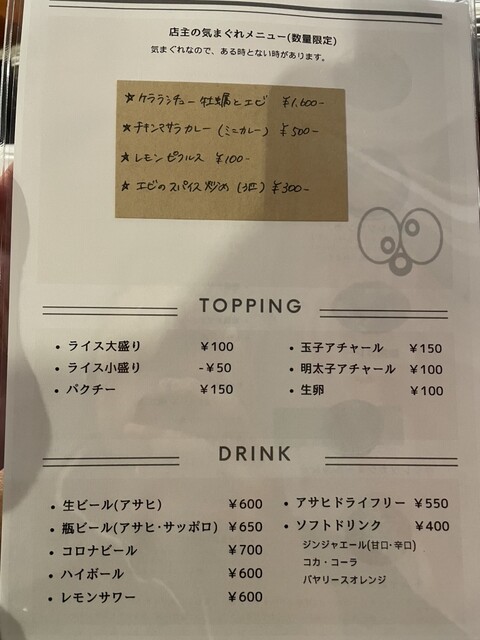 店主の気まぐれメニュー(数量限定)
気まぐれなので、ある時とない時があります。
★ケララシチュー 牡蠣とエビ ¥1,600-
★チキンマサラカレー (ミニカレー) ¥500-
★レモンピクルス ¥100-
★エビのスパイス炒め (3匹) ¥300-
TOPPING
・ライス大盛り ¥100
・ライス小盛り -¥50
・パクチー ¥150
・玉子アチャール ¥150
・明太子アチャール ¥100
・生卵 ¥100
DRINK
・生ビール(アサヒ) ¥600
・瓶ビール(アサヒ・サッポロ) ¥650
・コロナビール ¥700
・ハイボール ¥600
・レモンサワー ¥600
・アサヒドライフリー ¥550
・ソフトドリンク ¥400
ジンジャエール(甘口・辛口)
コカ・コーラ
バヤリースオレンジ